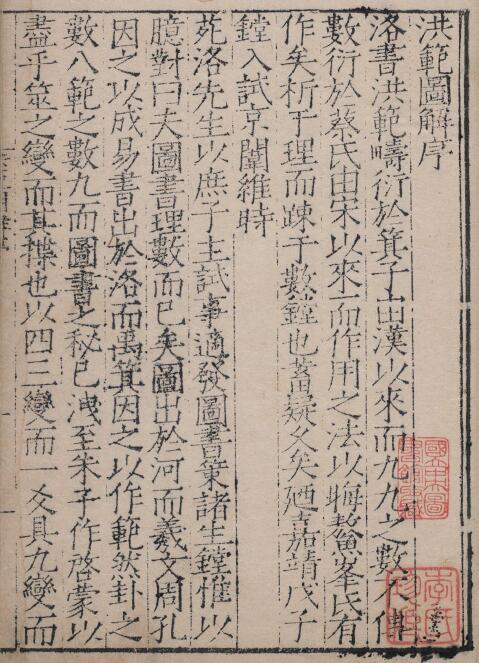 洪範圖解序
洛書洪範疇衍於箕子由漢以來而九九之數不傳
數衍於蔡氏由宋以來而作用之法以晦鰲峯氏有
作矣析于理而疎于數鏜也蓄疑久矣廼嘉靖戊子
鏜入試京闈維時
苑洛先生以庶子主試事適發圖書策諸生鏜惟以
臆對曰夫圖書理數而已矣圖出於河而羲文周孔
因之以成易書出於洛而禹箕因之以作範然卦之
數八範之數九而圖書之秘已洩至朱子作啓蒙以
盡乎筮之變而其揲也以四三變而一爻具九變而